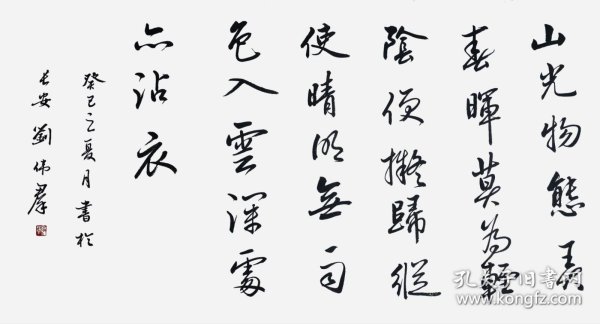 山光物態弄
春暉莫為輕
陰便擬歸縱
使晴明無雨
色入雲深處
亦沾衣
癸巳之夏月書於
長安劉偉羣
孔夫子旧书网
www.kongfz.com